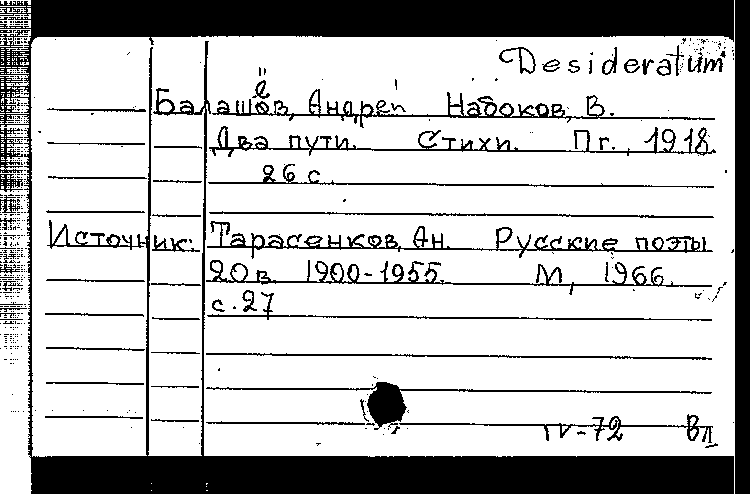 Desideratum
Балашёв, Андрей Набоков, В.
Два пути. Стихи. Пг., 1918.
26 с.
Источник: Тарасенков, Ан. Русские поэты
20 в. 1900-1955. М, 1966.
с. 27
IV-72 Вл